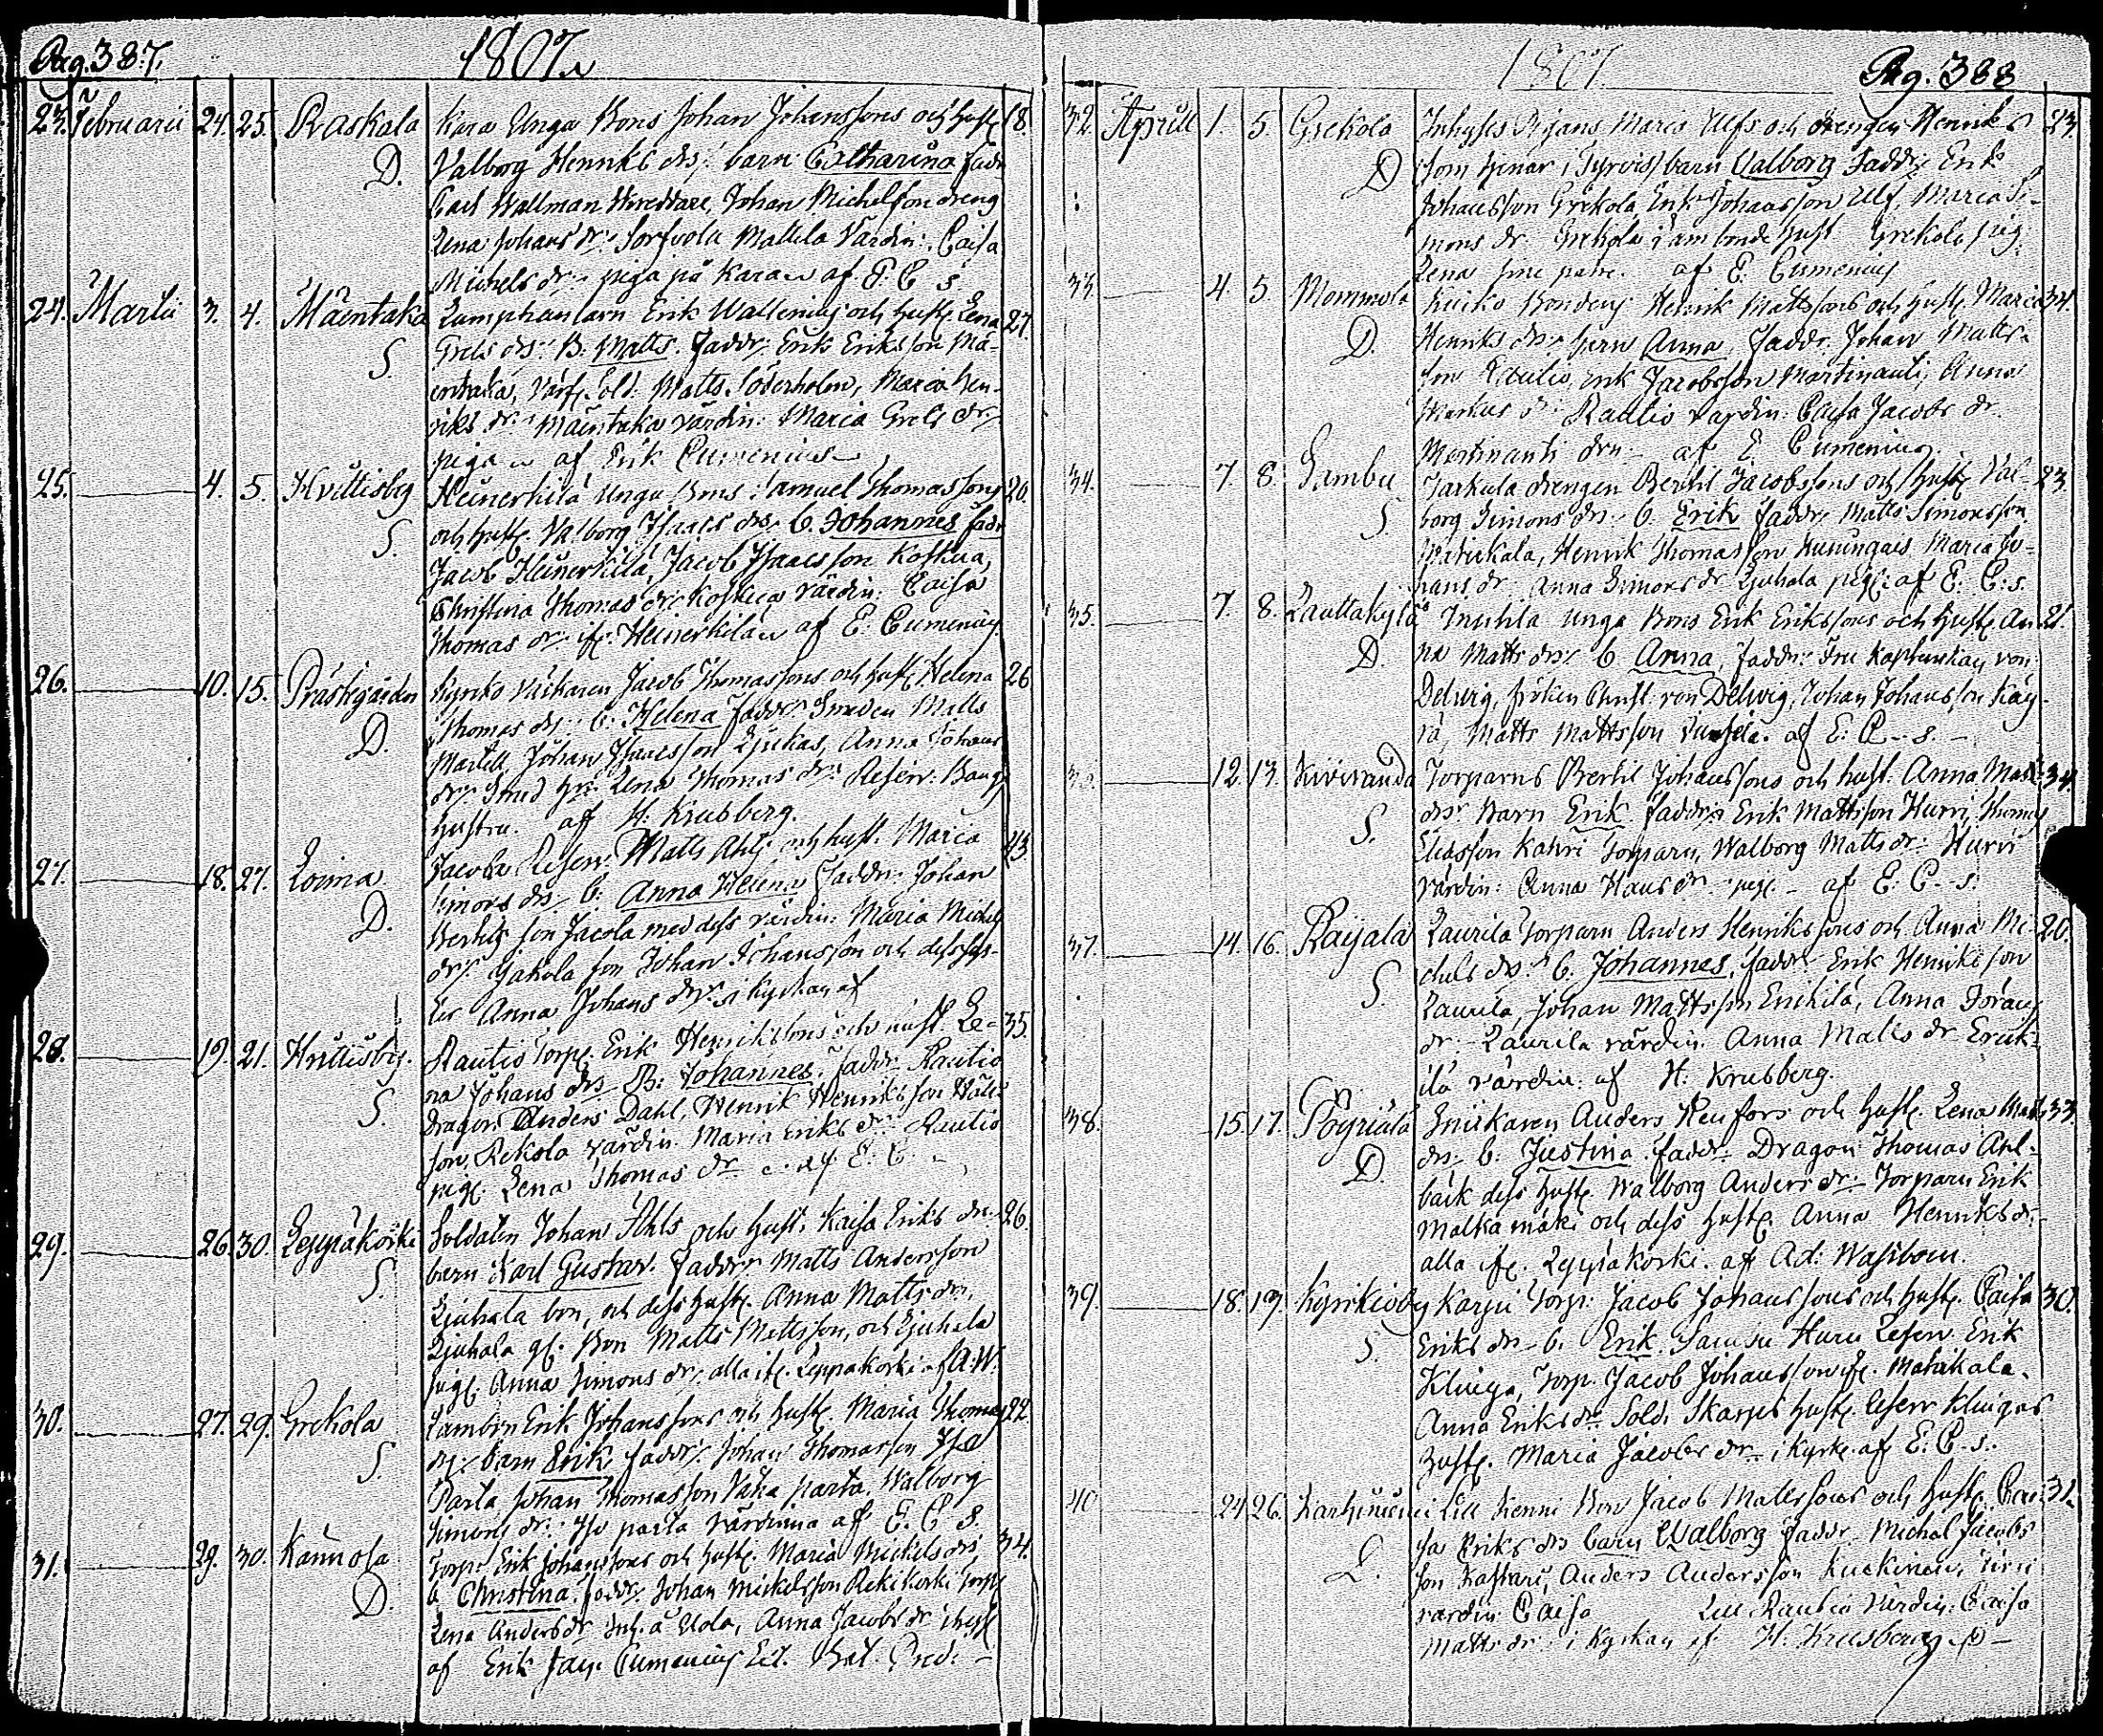 Pag. 387.
1807.
23. Februarii 24. 25. Raskala Kara Unga Bons Johan Johanssons och hust. 18.
D. Valborg Henriks dr: barn Catharina fadr
Carl Wallman Johan Michelson dreng
Lena Johans dr: Mattila Värdin: Caisa
Michels dr: piga på Kara af E. C s.
24. Martii 3. 4. Mäentaka Erik Wallenius och hust. Lena 27.
S. Grels dr: B: Matts. Faddr: Erik Eriksson Mä-
entaka, Sold. Matts Söderholm, Maria Hen-
riks dr: Mäentaka värdin: Maria Grels dr:
piga af Erik Cumenius
25. 4. 5. Hvittisby Heinerkilä unga Bons Samuel Thomassons 20.
S. och hust. Valborg Isaacs dr: b. Johannes fadr
Jacob Heinerkilä, Jacob Isaacsson Koskua,
Christina Thomas dr Koskua värdin: Caisa
Thomas dr: if. Heinerkilä af E: Cumenius
26. 10. 15. Prästegården Jacob Thomassons och hust. Helena 26
D. Thomas dr: b. Helena faddr: Smeden Matts
Martell, Johan Isaacsson Ljukas, Anna Johans
dr: Smed Lena Thomas dr: Reserv:
hustru. af H: Krusberg.
27. 18. 27. Loima Jacola Reserv. Matts Ahls och hust. Maria 43.
D. Simons dr: b: Anna Helena faddr: Johan
Bertils son Jacola med dess värdin: Maria Michels
dr: Jakola son Johan Johansson och dess sys-
ter Anna Johans dr: i Kyrkan af
28. 19. 21. Hvittisby. Rautio Torp. Erik Henrikssons och hust. Le- 35.
S. na Johans dr B: Johannes. faddr Rautio
Dragon Anders Dahl, Henrik Henriksson
son, Rekola värdin. Maria Eriks dr: Rautio
pig. Lena Thomas dr af E: C:
29. 26. 30. Leppäkoski Soldaten Johan Ahls och hust. Kaisa Eriks dr: 26.
S. barn Karl Gustav. faddr: Matts Andersson
Ljuhala bon, och dess hust. Anna Matts dr,
Ljuhala gl. Bon Matts Mattsson, och Ljuhala
pig. Anna Simons dr: alla if. Leppäkoski af A: W.
30. 27. 29. Grekola Erik Johanssons och hust. Maria Thomas 22
S. dr: barn Erik, faddr: Johan Thomasson Iso
Parta Johan Thomasson Vähä parta, Walborg
Simons dr: Iso parta värdinna af E. C s.
31. 29. 30. Kannola Torp. Erik Johanssons och hust. Maria Mickels dr: 34.
D. b Christina. faddr. Johan Mickelsson Rekikoski Torp.
Lena Anders dr Anna Jacobs dr
af Erik Jac. Cumenius
1807.
Pag. 388
32. Aprill 1. 5. Grekola Inhyses Pigans Maria Ulfs och drengen Henriks 23.
D som tjenar i Tyrvis barn Valborg faddr: Erik
Johansson Grekola, Erik Johansson Ulf, Maria Si-
mons dr Grekola bonde hust. Grekola pig.
Lena sine patre. af E. Cumenius
33. 4. 5. Mommola Bondens Henrik Mattssons och hust. Maria 34.
D. Henriks dr: barn Anna, faddr. Johan Matts-
son Rautio, Erik Jacobsson Martinanti, Anna
Markus dr: Rautio värdin Caisa Jacobs dr.
Martinanti drn: af E Cumenius.
34. 7. 8. Sambu Jarkula drengen Bertil Jacobssons och hust. Val- 23.
S. borg Simons dr: b. Erik faddr: Matts Simonsson
Henrik Thomasson Maria Jo-
hans dr. Anna Simons dr Ljuhala pig: af E: C: s.
35. 7. 8. Lauttakylä unga Bons Erik Erikssons och hust. An 21.
D. na Matts dr: b Anna, faddr: Fru Kaptenskan von
Delwig, fröken Christ. von Delwig, Johan Johansson Käy-
rä, Matts Mattsson af E: C--s.
12. 13. Kiviranda Torparns Bertil Johanssons och hust. Anna Matts 34.
S. dr: barn Erik. faddr: Erik Mattsson Hurri, Thomas
Eliasson Kahri Torparn, Walborg Matts dr: Hurri
värdin: Anna Hans dr: pig: af E: C--s.
37. 14. 16. Raijala Laurila Torparn Anders Henrikssons och Anna Mi- 26.
S. chels dr: b. Johannes, faddr: Erik Henriksson
Laurila, Johan Mattsson Erickilä, Anna Görans
dr: Laurila värdin. Anna Matts dr Erick-
ilä värdin: af H: Krusberg.
38. 15. 17. Pöyriälä Snickaren Anders Renfors och hust. Lena Matts 33.
D. dr: b. Justina. faddr: Dragon Thomas Ahl-
bäck dess hust. Walborg Anders dr: Torparn Erik
Malkamäki och dess hust. Anna Henriks dr:
alla if. Leppäkoski. af Ad: Wastbom.
39. 18. 19. Kyrkioby Karpi Torp: Jacob Johanssons och hust. Caisa 30.
S. Eriks dr b. Erik. Reserv. Erik
Klinga, Torp. Jacob Johansson if. Mahikala.
Anna Eriks dr. Sold: Skarps hust. Reserv Klingas
hust. Maria Jacobs dr i Kyrk. af E. C-s.
40 24 26. Karhiniemi Lill Kenni Bon Jacob Mattssons och hust. Cai- 31.
D. sa Eriks dr barn Walborg faddr: Michel Jacobs
son Kaskari, Anders Andersson Kuckinen,
värdin: Caisa Lill Rautio Värdin: Caisa
Matts dr: i Kyrkan af H. Krusberg